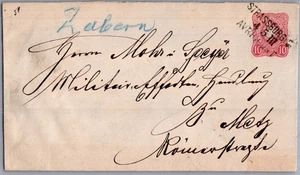 Zabern
STRASSBURG
10 10
Herrn Mohr & Speyer
Militair-Effecten Handlung
Zu Metz
Römerstraße